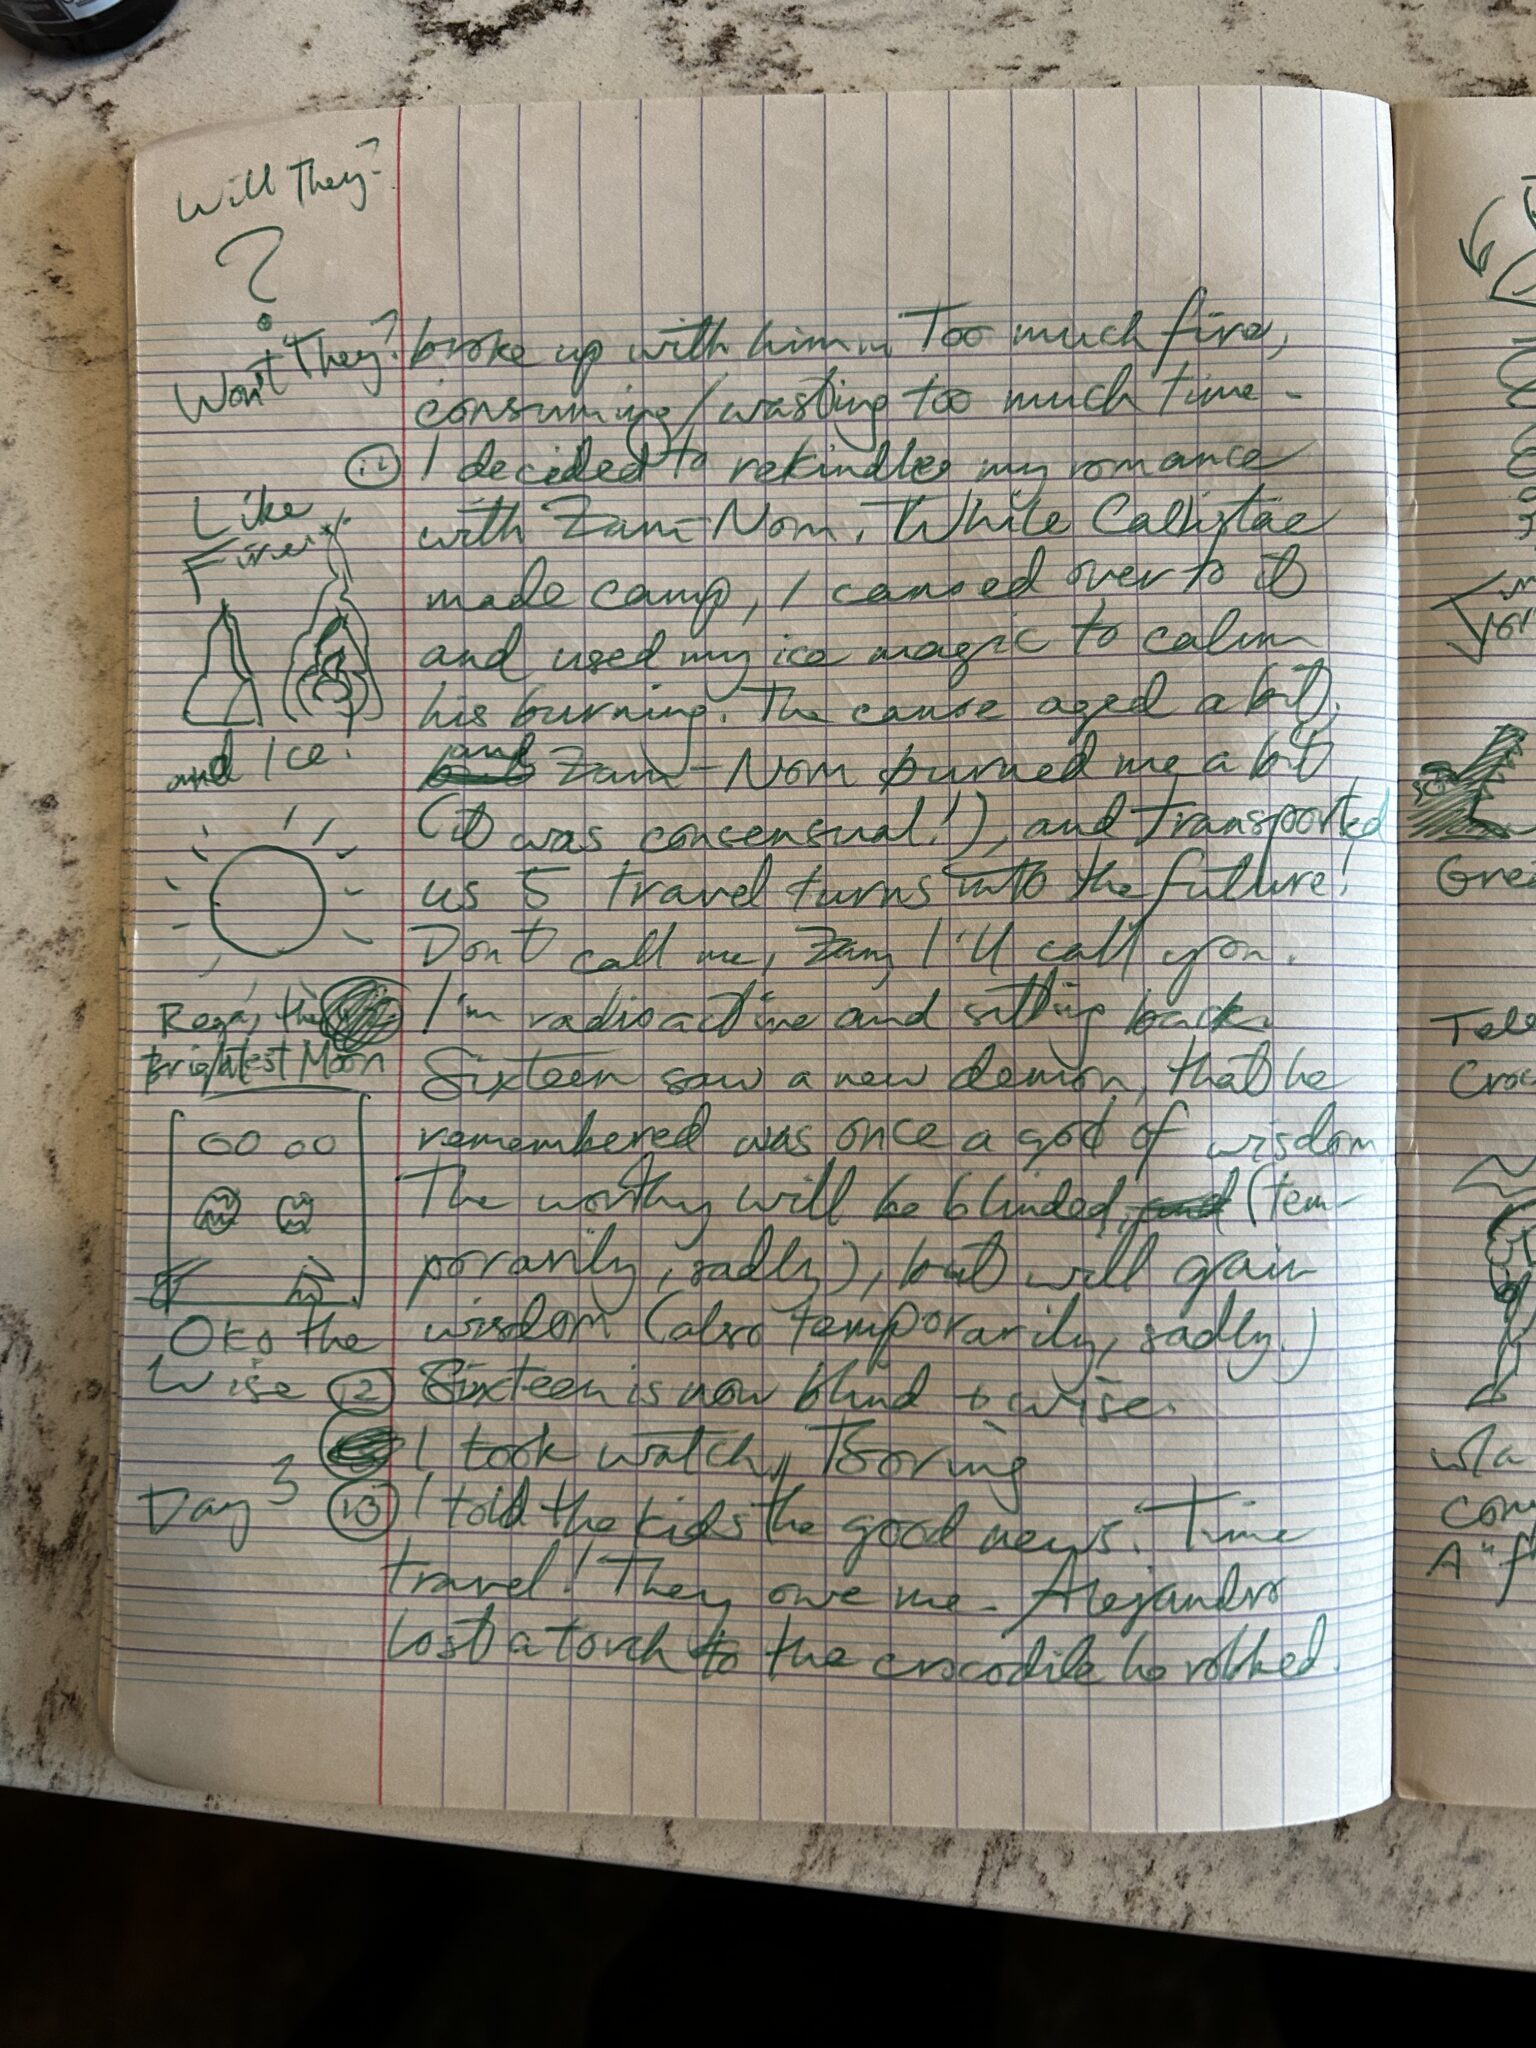 Will They?
?
Won't They?
broke up with him... Too much fire,
consuming/wasting too much time.
11 I decided to rekindle my romance
with Zam-Nom. While Callistae
made camp, I canoed over to it
and used my ice magic to calm
his burning. The canoe aged a bit,
and Zam-Nom burned me a bit
(it was consensual!), and transported
us 5 travel turns into the future!
Don't call me, Zam, I'll call you.
I'm radioactive and sitting back.
Sixteen saw a new demon, that he
remembered was once a god of wisdom.
The worthy will be blinded, (tem-
porarily, sadly), but will gain
wisdom (also temporarily, sadly.)
12 Sixteen is now blind + wise.
I took watch. Boring
13 I told the kids the good news: Time
travel! They owe me. Alejandro
lost a torch to the crocodile he robbed.
Like
Fire
and Ice.
the
Brightest Moon
Oko the
Wise
Day 3
Gre
Tele
Croc
Com
A "f